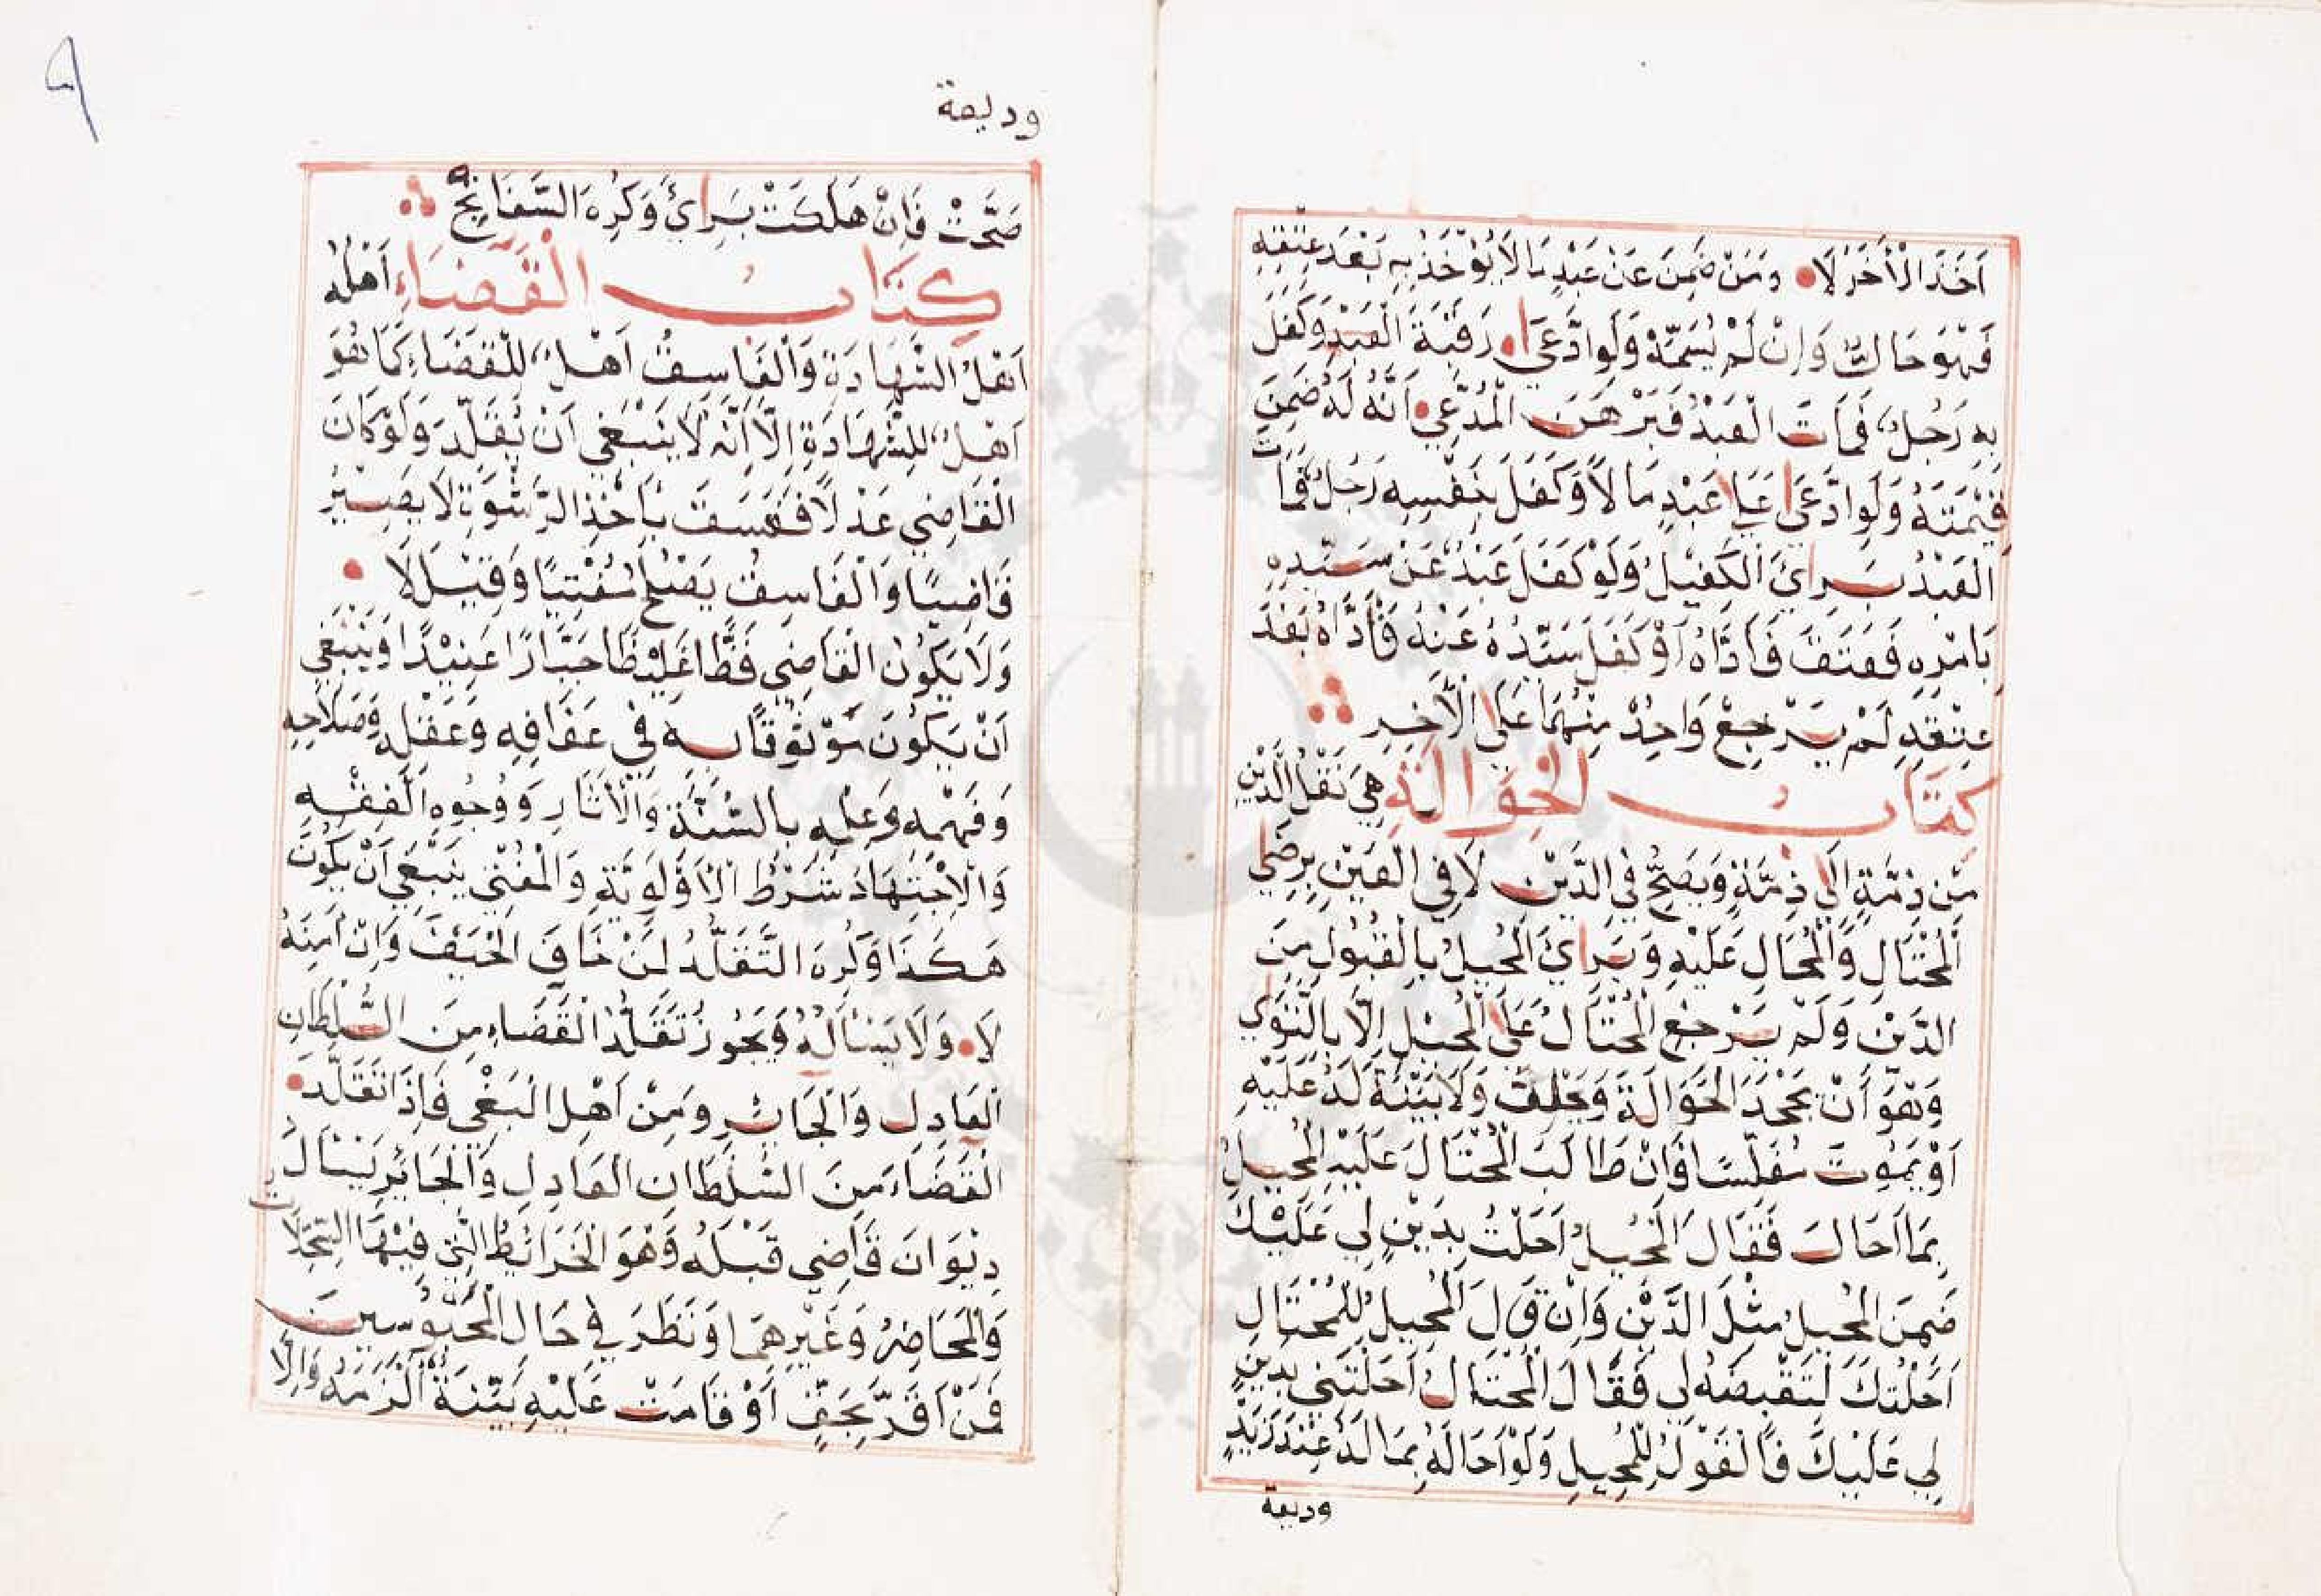 اَخَذَ الْأَخَرُ لَا وَمَنْ ضَمِنَ عَنْ عَبْدٍ مَالًا يُؤْخَذُ بِهِ بَعْدَ عِتْقِهِ
فَهُوَ حَالٌّ وَاِنْ لَمْ يُسَمِّهْ وَلَوِ ادَّعَى رَقَبَةَ الْعَبْدِ وَكَفَلَ
بِهِ رَجُلٌ فَمَاتَ الْعَبْدُ فَبَرْهَنَ الْمُدَّعِي اَنَّهُ لَهُ ضَمِنَ
قِيْمَتَهُ وَلَوِ ادَّعَى عَلَى عَبْدٍ مَالًا وَكَفَلَ بِنَفْسِهِ رَجُلٌ فَمَاتَ
الْعَبْدُ بَرِائَ الْكَفِيْلُ وَلَوْ كَفَلَ عَبْدٌ عَنْ سَيِّدِهِ
بِاَمْرِهِ فَعَتَقَ فَاَدَّاهُ اَوْ كَفَلَ سَيِّدُهُ عَنْهُ فَأَدَّاهُ بَعْدَ
عِتْقِهِ لَمْ يَرْجِعْ وَاحِدٌ مِنْهُمَا عَلَى الْآخَرِ
كِتَابُ الْحَوَالَةِ هِيَ نَقْلُ الدَّيْنِ
مِنْ ذِمَّةٍ اِلَى ذِمَّةٍ وَيَصِحُّ فِي الدَّيْنِ لَا فِي الْعَيْنِ بِرِضَى
الْمُحْتَالِ وَالْمُحَالِ عَلَيْهِ وَبَرِائَ الْمُحِيلُ بِالْقَبُولِ مِنَ
الدَّيْنِ وَلَمْ يَرْجِعِ الْمُحْتَالُ عَلَى الْمُحِيْلِ اِلَّا بِالتَّوَى
وَهُوَ اَنْ يَجْحَدَ الْحَوَالَةَ وَيَحْلِفَ وَلَا بَيِّنَةَ لَهُ عَلَيْهِ
اَوْ يَمُوتَ مُفَلِّسًا فَاِنْ طَالَبَ الْمُحْتَالَ عَلَيْهِ الْمُحِيلُ
بِمَا اَحَالَ فَقَالَ الْمُحِيلُ اَحَلْتُ بِدَيْنٍ لِي عَلَيْكَ
ضَمِنَ الْمُحِيلُ مِثْلَ الدَّيْنِ وَاِنْ قَالَ الْمُحِيلُ لِلْمُحْتَالِ
اَحَلْتُكَ لِتَقْبِضَهُ لِي فَقَالَ الْمُحْتَالُ اَحَلْتَنِي بِدَيْنٍ
لِي عَلَيْكَ فَالْقَوْلُ لِلْمُحِيلِ وَلَوْ اَحَالَهُ بِمَا لَهُ عِنْدَ زَيْدٍ
وديعة
وديعة
صَحَّتْ فَاِنْ هَلَكَتْ بَرِائَ وَكُرِهَ السَّفَاتِجُ
كِتَابُ الْقَضَاءِ اَهْلُهُ
اَهْلُ الشَّهَادَةِ وَالْفَاسِقُ اَهْلٌ لِلْقَضَاءِ كَمَا هُوَ
اَهْلٌ لِلشَّهَادَةِ اِلَّا اَنَّهُ لَا يَنْبَغِي اَنْ يُقَلَّدَ وَلَوْ كَانَ
الْقَاضِي عَدْلًا فَفَسَقَ بِاَخْذِ الرِّشْوَةِ لَا يَصِيْرُ
قَاضِيًا وَالْفَاسِقُ يَصْلُحُ مُفْتِيًا وَقِيْلَ لَا
وَلَا يَكُوْنُ الْقَاضِي فَظًّا غَلِيْظًا جَبَّارًا عَنِيْدًا وَيَنْبَغِي
اَنْ يَكُوْنَ مَوْثُوْقًا بِهِ فِي عَفَافِهِ وَعَقْلِهِ وَصَلَاحِهِ
وَفَهْمِهِ وَعِلْمِهِ بِالسُّنَّةِ وَالْاَثَارِ وَوُجُوهِ الْفِقْهِ
وَالْاِجْتِهَادُ شَرْطُ الْاَوْلَوِيَّةِ وَالْمُفْتِي يَنْبَغِي اَنْ يَكُونَ
هَكَذَا وَكُرِهَ التَّقَلُّدُ لِمَنْ خَافَ الْحَيْفَ وَاِنْ اَمِنَهُ
لَا وَلَا يَسْأَلُهُ وَيَجُوزُ تَقَلُّدُ الْقَضَاءِ مِنَ السُّلْطَانِ
الْعَادِلِ وَالْجَائِرِ وَمِنْ اَهْلِ الْبَغْيِ فَاِذَا تَقَلَّدَ
الْقَضَاءَ مِنَ السُّلْطَانِ الْعَادِلِ وَالْجَائِرِ يَسْأَلُ
دِيْوَانَ قَاضِي قَبْلَهُ وَهُوَ الْخَرَائِطُ الَّتِي فِيْهَا السِّجِلَّاتُ
وَالْمَحَاضِرُ وَغَيْرِهِمَا وَنَظَرَ فِي حَالِ الْمَحْبُوْسِينَ
فَمَنْ اَقَرَّ بِحَقٍّ اَوْ قَامَتْ عَلَيْهِ بَيِّنَةٌ اَلْزَمَهُ وَاِلَّا